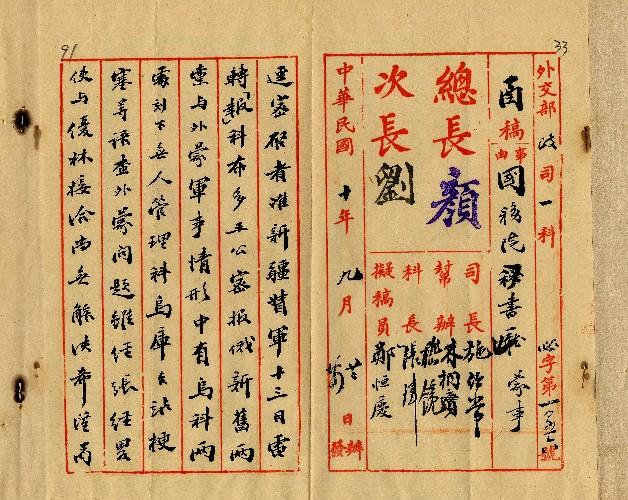 33
外交部 政司一科 字第 號
函稿 事由 國務院秘書廳 蒙事
總長 顏
次長 劉
司長 施紹常
幫辦
科長
擬稿員 鄭恒慶
中華民國十年九月 日 辦發
91
逕密啓者准新疆督軍十三日電
轉報科布多王公密報俄新舊兩
黨與外蒙軍事情形中有烏科兩
處刻下無人管理科烏庫台站梗
塞等語查外蒙問題雖經張經畧
使與優林接洽尚無解決希望而